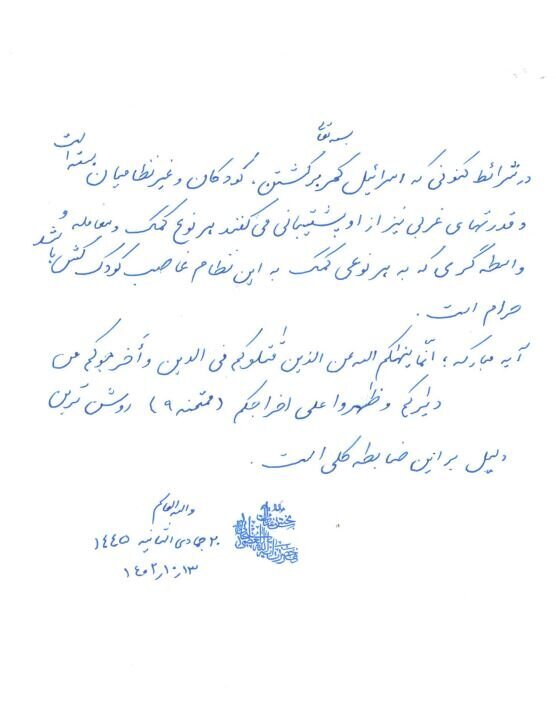 بسمه تعالی
در شرائط کنونی که اسرائیل کمر بر کشتن، کودکان و غیرنظامیان بسته است
و قدرتهای غربی نیز از او پشتیبانی می‌کنند هر نوع کمک و معامله و
واسطه گری که به هر نوعی کمک به این نظام غاصب کودک کش باشد
حرام است.
آیه مبارکه؛ انّما ینهٰکم الله عن الذین قٰتلوکم فی الدین و أخرجوکم من
دیٰرکم و ظٰهروا علی اخراجکم (ممتحنه ۹) روشن ترین
دلیل بر این ضابطه کلی است.
والله العالم
۲۰ جمادی الثانیه ۱۴۴۵
۱۴۰۲٫۱۰٫۱۳